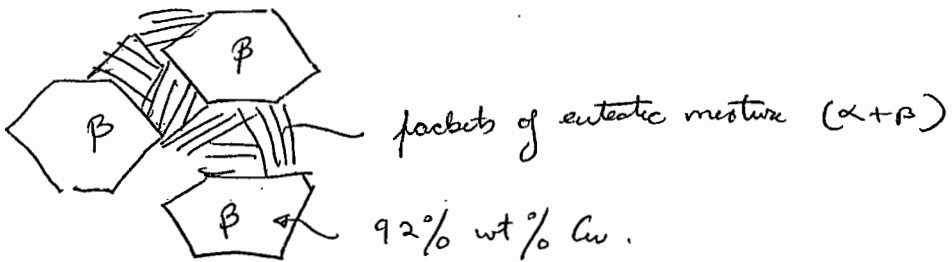 β
β
packets of eutectic mixture (α+β)
β
92% wt % Cu.